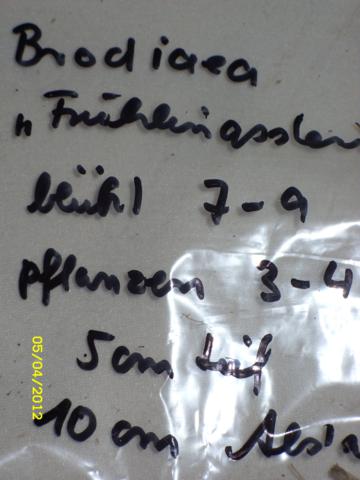 Brodiaea
„Frühlingsster
blüht 7-9
pflanzen 3-4
5cm tief
10 cm Abst
05/04/2012